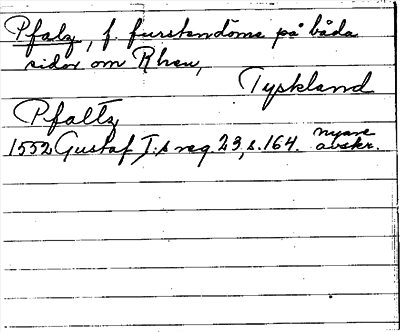 Pfalz, f. furstendöme på båda
sidor om Rhen,
Tyskland
Pfaltz
1552 Gustaf I:s reg. 23, s. 164. nyare avskr.